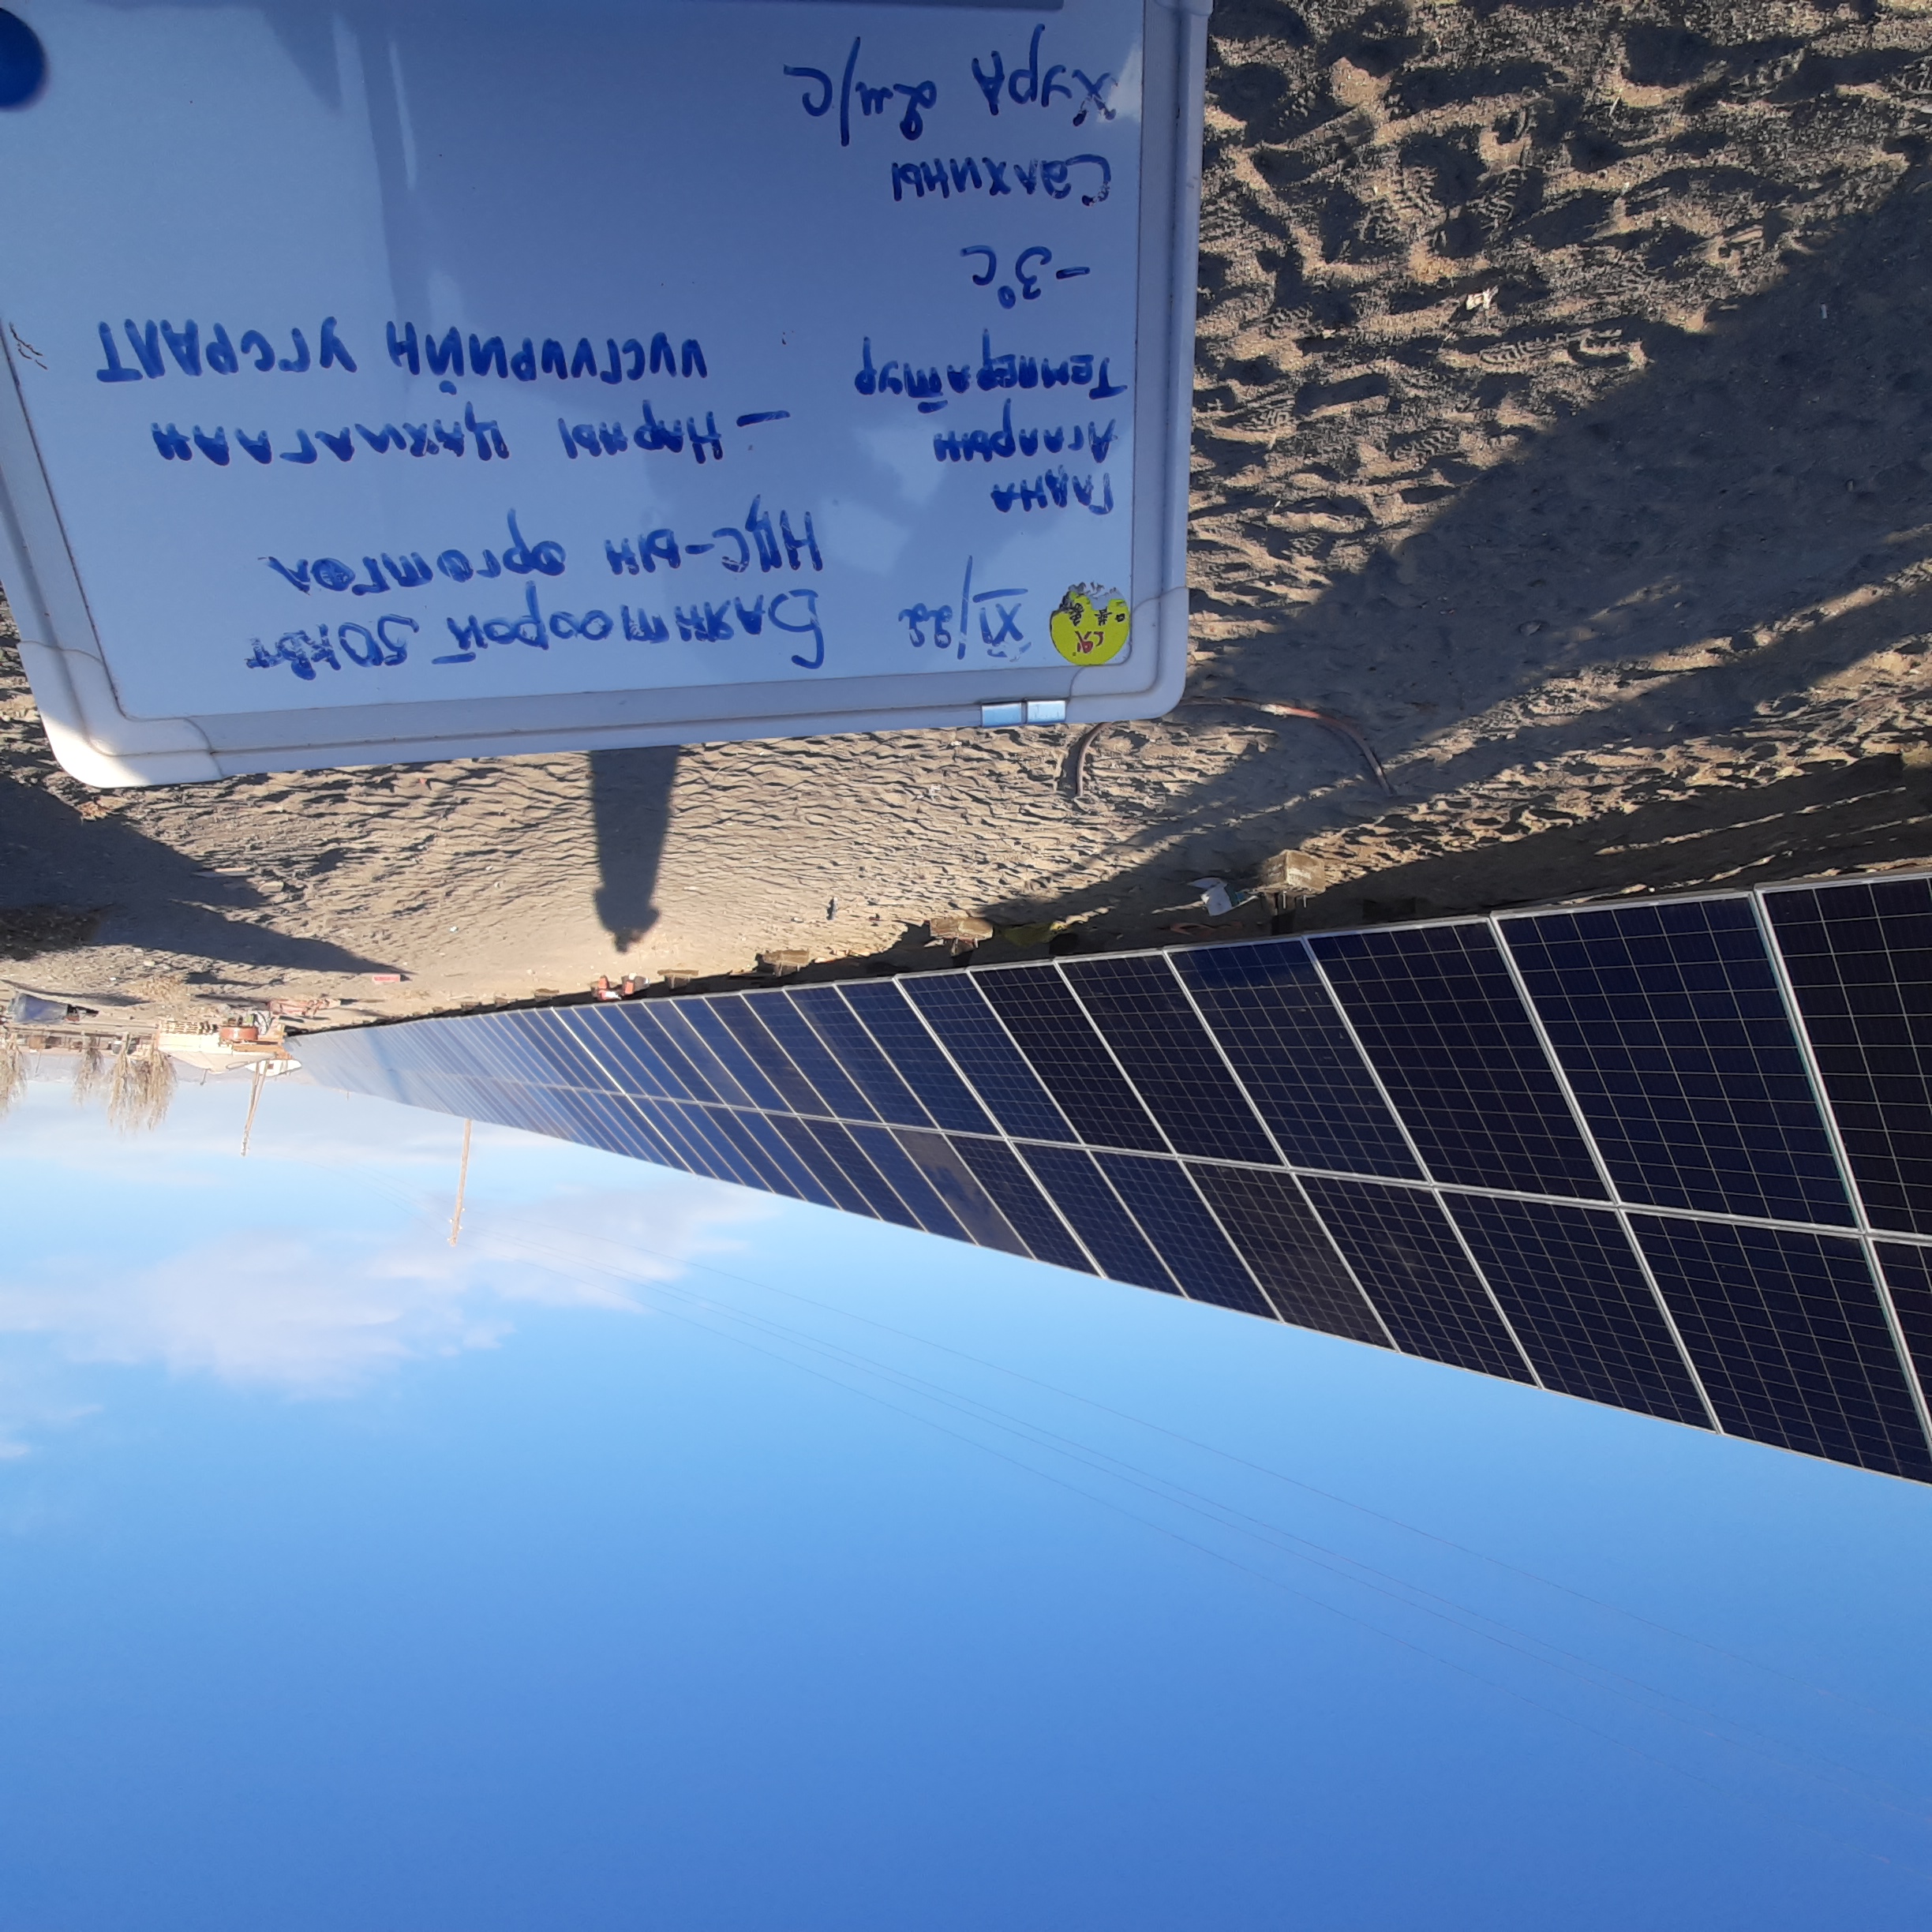 XI/22
Баянтоорой 50кВт
НЦС-ын өргөтгөл
Гадна
Агаарын
Температур
-3°C
Салхины
Хурд 2м/с
- Нарны цахилгаан
үүсгүүрийн угсралт